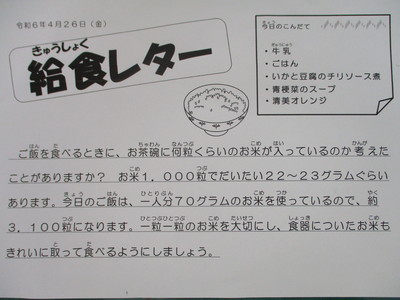 令和6年4月26日（金）
きゅうしょく
給食レター
今日のこんだて
・牛乳
・ごはん
・いかと豆腐のチリソース煮
・青梗菜のスープ
・清美オレンジ
ご飯を食べるときに、お茶碗に何粒くらいのお米が入っているのか考えた
ことがありますか？　お米1，000粒でだいたい22～23グラムぐらい
あります。今日のご飯は、一人分70グラムのお米を使っているので、約
3．100粒になります。一粒一粒のお米を大切にし、食器についたお米も
きれいに取って食べるようにしましょう。